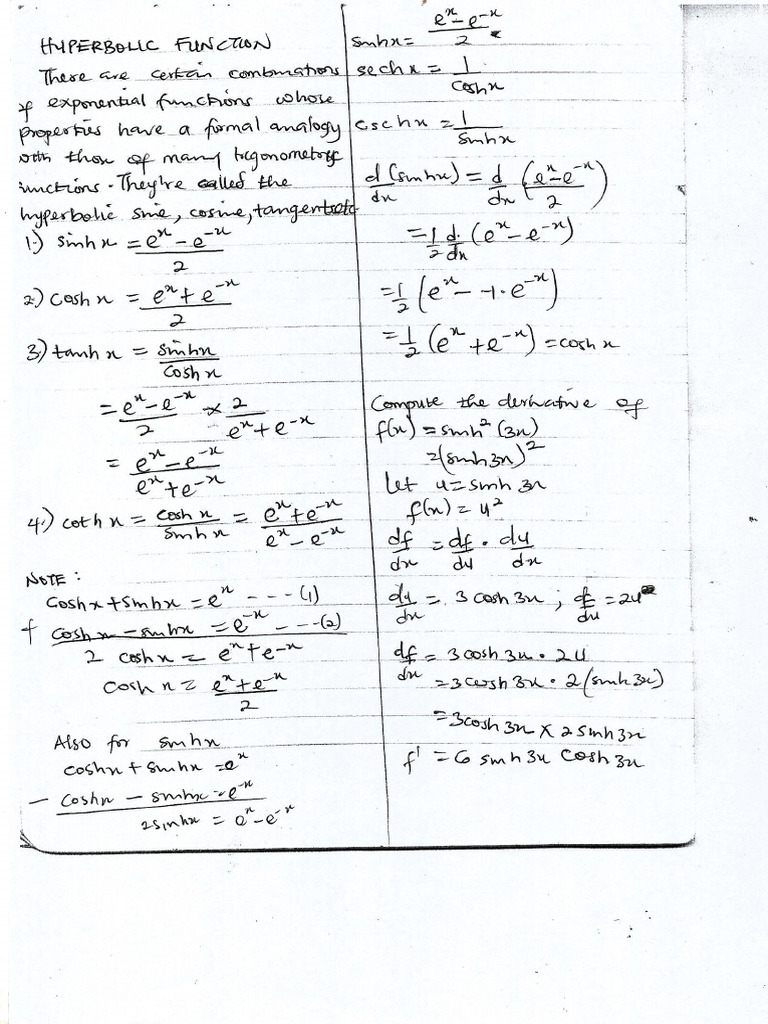 HYPERBOLIC FUNCTION
There are certain combinations
of exponential functions whose
properties have a formal analogy
with those of many trigonometry
functions. They're called the
hyperbolic sine, cosine, tangent etc
1.) sinhx = (e^x − e^-x)/2
2.) coshx = (e^x + e^-x)/2
3.) tanhx = sinhx/coshx
= (e^x − e^-x)/2 × 2/(e^x + e^-x)
= (e^x − e^-x)/(e^x + e^-x)
4.) cothx = coshx/sinhx = (e^x + e^-x)/(e^x − e^-x)
NOTE:
Coshx + sinhx = e^x ---- (1)
+ coshx − sinhx = e^-x ---- (2)
2 coshx = e^x + e^-x
Coshx = (e^x + e^-x)/2
Also for sinhx
coshx + sinhx = e^x
− coshx − sinhx = e^-x
2sinhx = e^x − e^-x
sinhx = (e^x − e^-x)/2
sechx = 1/coshx
cschx = 1/sinhx
d/dx (sinhx) = d/dx ((e^x − e^-x)/2)
= 1/2 d/dx (e^x − e^-x)
= 1/2 (e^x − −1·e^-x)
= 1/2 (e^x + e^-x) = coshx
Compute the derivative of
f(x) = sinh²(3x)
= (sinh3x)²
Let u = sinh 3x
f(x) = u²
df/dx = df/du · du/dx
du/dx = 3cosh3x ; df/du = 2u
df/dx = 3cosh3x · 2u
= 3cosh3x · 2(sinh3x)
= 3cosh3x × 2sinh3x
f' = 6 sinh3x cosh3x